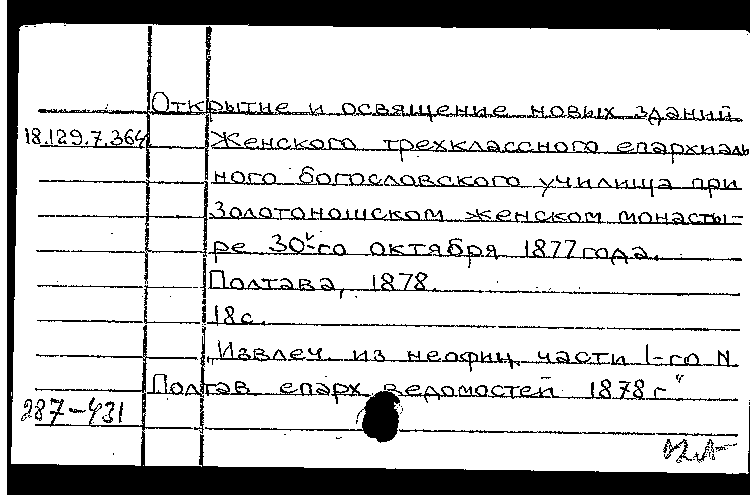 Открытие и освящение новых зданий
18.129.7.364 Женского трехклассного епархиаль
ного богословского училища при
Золотоношском женском монасты-
ре 30-го октября 1877 года.
Полтава, 1878.
18с.
„Извлеч. из неофиц. части 1-го N.
Полтав. епарх. ведомостей 1878 г."
287-431